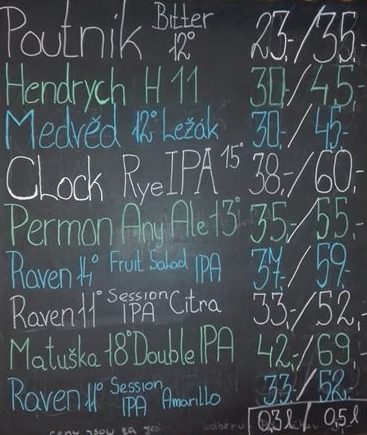 Poutník Bitter 12° 23,-/35,-
Hendrych H 11 30,-/45,-
Medvěd 12° Ležák 30,-/45,-
CLock Rye IPA 15° 38,-/60,-
Permon Any Ale 13° 35,-/55,-
Raven 14° Fruit Salad IPA 37,-/59,-
Raven 11° Session IPA Citra 33,-/52,-
Matuška 18° Double IPA 42,-/69,-
Raven 11° Session IPA Amarillo 33,-/52,-
0,3 l / 0,5 l
ceny jsou za